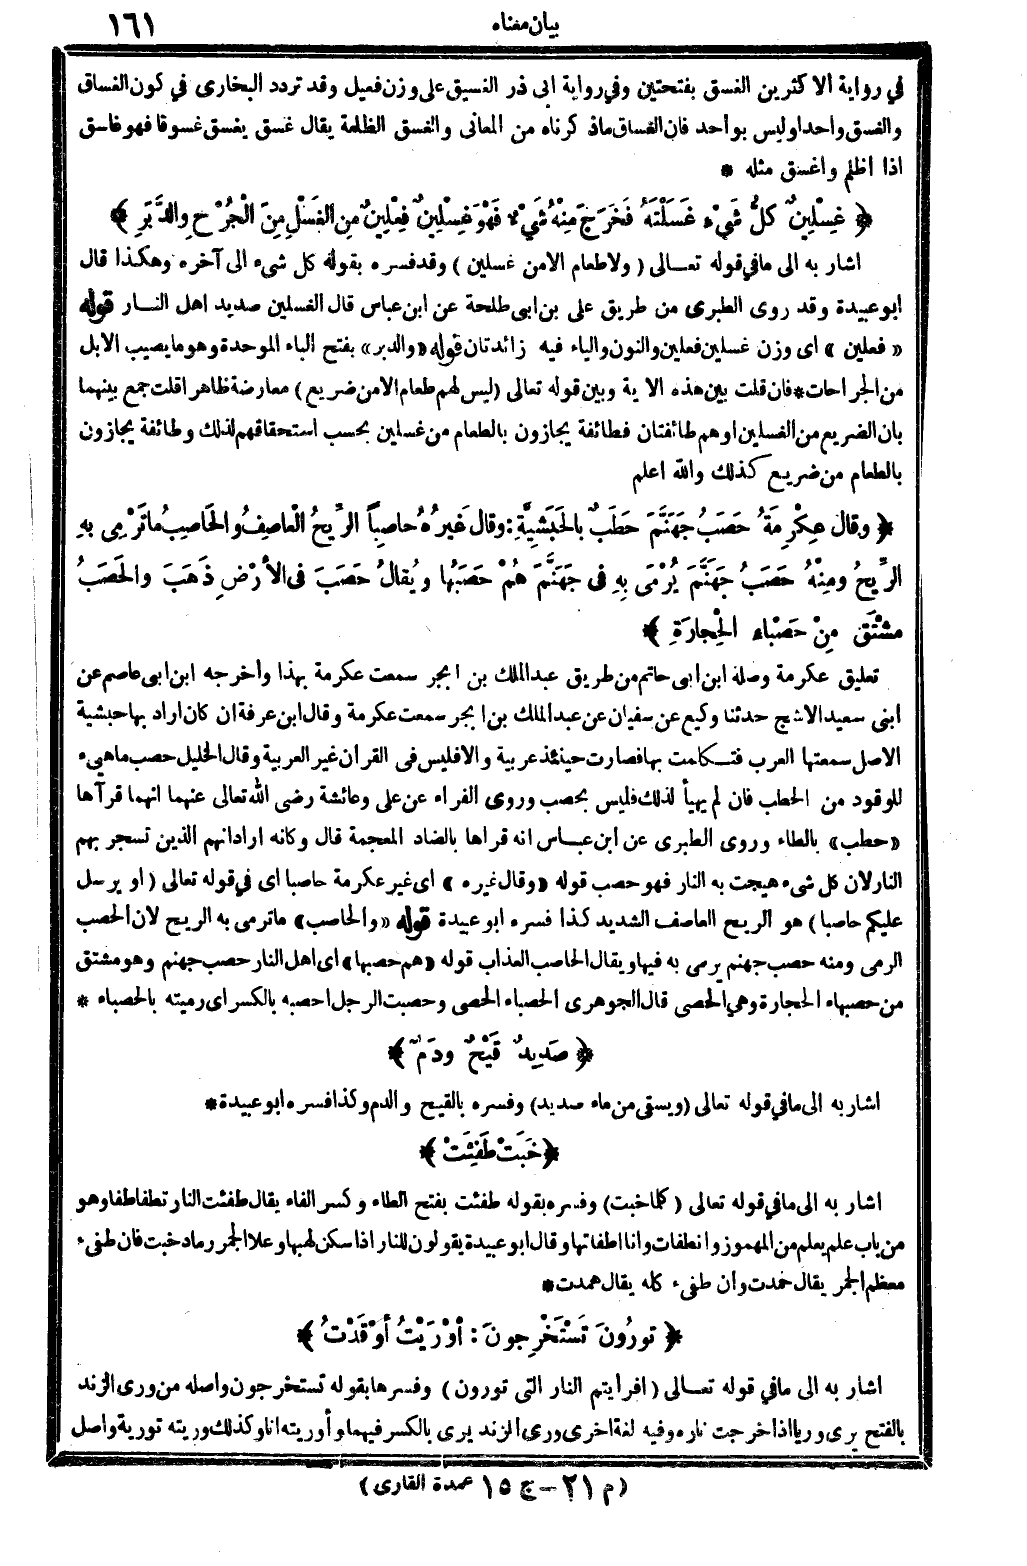 بيان معناه ١٦١
في رواية الاكثرين الغسق بفتحتين وفي رواية ابى ذر الغسيق على وزن فعيل وقد تردد البخارى في كون الغساق
والغسق واحدا وليس بواحد فان الغساق ماذكرناه من المعانى والغسق الظلمة يقال غسق يغسق غسوقا فهو غاسق
اذا اظلم واغسق مثله *
﴿ غِسْلِينٌ كلُّ شَيْءٍ غَسَلْتَهُ فَخَرَجَ مِنْهُ شَيْءٌ فَهْوَ غِسْلِينٌ فِعْلِينٌ مِنِ الغَسْلِ مِنَ الْجُرْحِ والدَّبَرِ ﴾
اشار به الى مافي قوله تعـالى ( ولاطعام الامن غسلين ) وقد فسره بقوله كل شىء الى آخره وهكذا قال
ابو عبيدة وقد روى الطبرى من طريق على بن ابى طلحة عن ابن عباس قال الغسلين صديد اهل النـار قوله
« فعلين » اى وزن غسلين فعلين والنون والياء فيه زائدتان قوله « والدبر » بفتح الباء الموحدة وهو مايصيب الابل
من الجراحات * فان قلت بين هذه الاية وبين قوله تعالى (ليس لهم طعام الامن ضريع) معارضة ظاهرا قلت جمع بينهما
بان الضريع من الغسلين او هم طائفتان فطائفة يجازون بالطعام من غسلين بحسب استحقاقهم لذلك وطائفة يجازون
بالطعام من ضريع كذلك والله اعلم
﴿ وقال عِكْرِمَةُ حَصَبُ جَهَنَّمَ حَطَبٌ بالحَبَشِيَّةِ : وقال غَيْرُهُ حاصِباً الرِّيحُ الْعاصِفُ والحَاصِبُ ماتَرْمِى بِهِ
الرِّيحُ ومِنْهُ حَصَبُ جَهَنَّمَ يُرْمَى بِهِ فى جَهَنَّمَ هُمْ حَصَبُها ويُقالُ حَصَبَ فى الأرْضِ ذَهَبَ والحَصَبُ
مُشْتَقٌ مِنْ حَصْباءِ الحِجارَةِ ﴾
تعليق عكرمة وصله ابن ابى حاتم من طريق عبد الملك بن ابجر سمعت عكرمة بهذا واخرجه ابن ابى عاصم عن
ابنى سعيد الاشج حدثنا وكيع عن سفيان عن عبد الملك بن ابجر سمعت عكرمة وقال ابن عرفة ان كان اراد بها حبشية
الاصل سمعتها العرب فتـكلمت بها فصارت حينئذ عربية والافليس فى القرآن غير العربية وقال الخليل حصب ماهيء
للوقود من الحطب فان لم يهيأ لذلك فليس بحصب وروى الفراء عن على وعائشة رضى الله تعالى عنهما انهما قرآها
« حطب » بالطاء وروى الطبرى عن ابن عبـاس انه قراها بالضاد المعجمة قال وكانه ارادانهم الذين تسجر بهم
النار لان كل شىء هيجت به النار فهو حصب قوله « وقال غيره » اى غير عكرمة حاصبا اى في قوله تعالى ( او يرسل
عليكم حاصبا ) هو الريح العاصف الشديد كذا فسره ابو عبيدة قوله « والحاصب » ماترمى به الريح لان الحصب
الرمى ومنه حصب جهنم يرمى به فيها ويقال الحاصب العذاب قوله « هم حصبها » اى اهل النار حصب جهنم وهو مشتق
من حصبهاء الحجارة وهي الحصى قال الجوهرى الحصباء الحصى وحصبت الرجل احصبه بالكسر اى رميته بالحصباء *
﴿ صَدِيدٌ قَيْحٌ ودَمٌ ﴾
اشار به الى مافي قوله تعالى (ويسقى من ماء صديد) وفسره بالقيح والدم وكذا فسره ابو عبيدة *
﴿ خَبَتْ طَفِئَتْ ﴾
اشار به الى مافي قوله تعالى ( كلما خبت) وفسره بقوله طفئت بفتح الطاء وكسر الفاء يقال طفئت النار تطفا طفا وهو
من باب علم يعلم من المهموز وانطفات وانا اطفاتها وقال ابو عبيدة يقولون للنار اذا سكن لهبها وعلا الجمر رماد خبت فان طفىء
معظم الجمر يقال خمدت وان طفىء كله يقال همدت *
﴿ تورُونَ تَسْتَخْرِجونَ : أوْرَيْتُ أوْقَدْتُ ﴾
اشار به الى مافي قوله تعـالى ( افرايتم النار التى تورون ) وفسرها بقوله تستخرجون واصله من ورى الزند
بالفتح يرى وريا اذا خرجت ناره وفيه لغة اخرى ورى الزند يرى بالكسر فيهما وأوريته انا وكذلك وريته تورية واصل
( م ٢١ – ج ١٥ عمدة القارى )